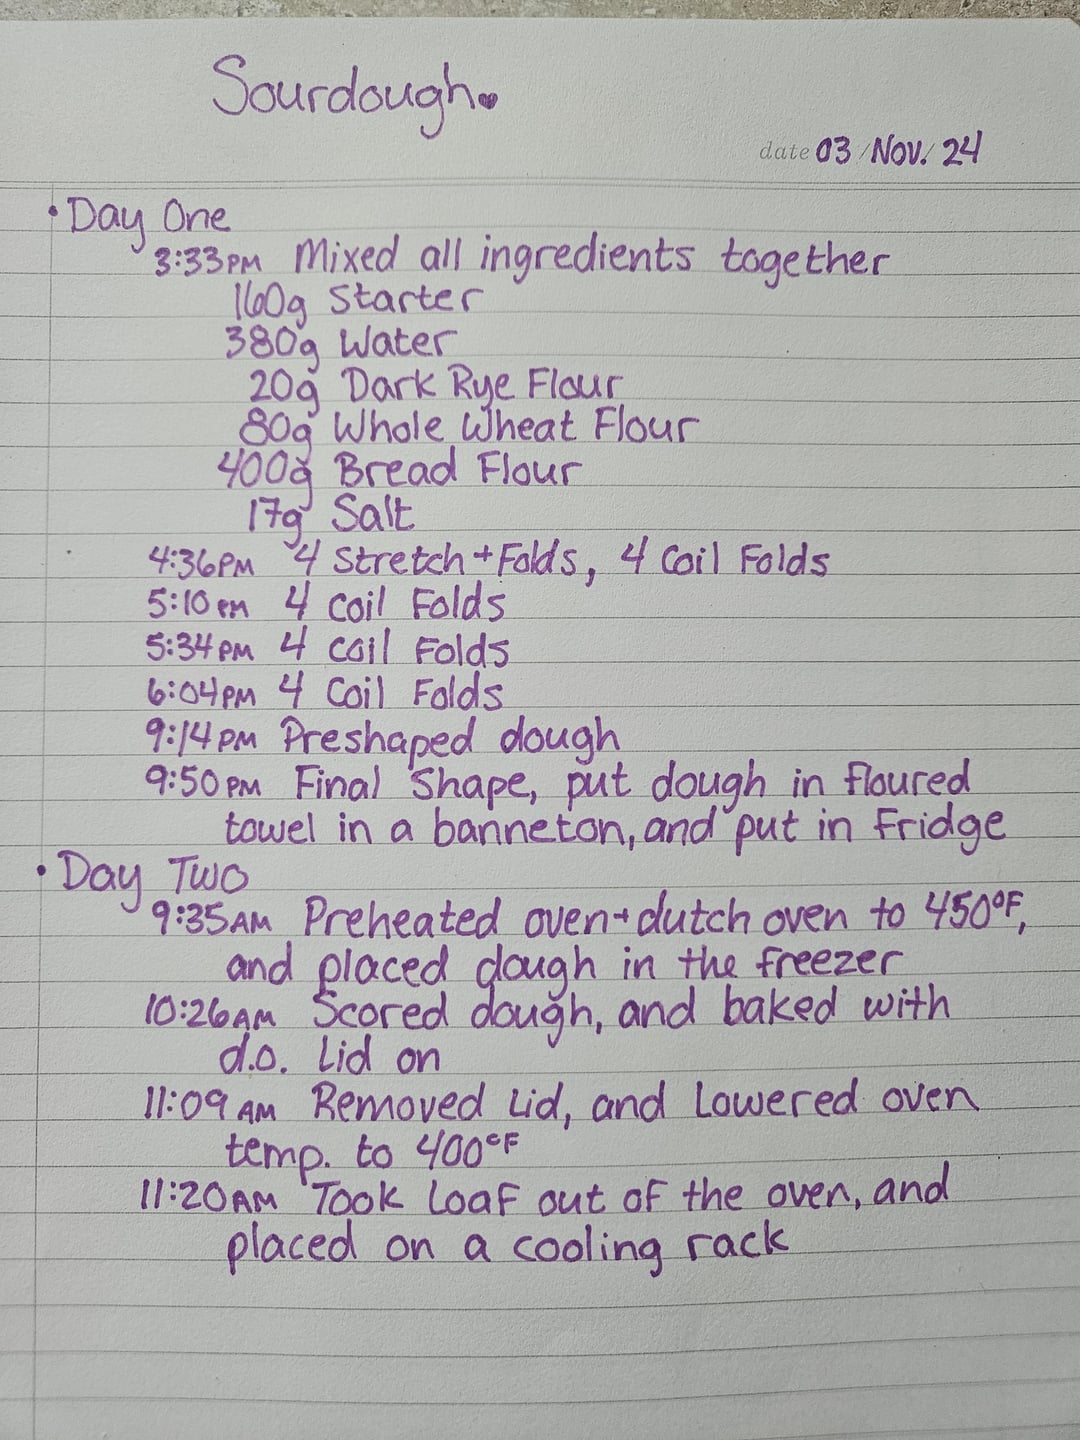 Sourdough♥
date 03 / Nov. / 24
• Day One
3:33PM Mixed all ingredients together
160g Starter
380g Water
20g Dark Rye Flour
80g Whole Wheat Flour
400g Bread Flour
17g Salt
4:36PM 4 Stretch + Folds, 4 Coil Folds
5:10PM 4 Coil Folds
5:34PM 4 Coil Folds
6:04PM 4 Coil Folds
9:14PM Preshaped dough
9:50PM Final Shape, put dough in floured
towel in a banneton, and put in fridge
• Day Two
9:35AM Preheated oven + dutch oven to 450°F,
and placed dough in the freezer
10:26AM Scored dough, and baked with
d.o. Lid on
11:09AM Removed Lid, and Lowered oven
temp. to 400°F
11:20AM Took Loaf out of the oven, and
placed on a cooling rack